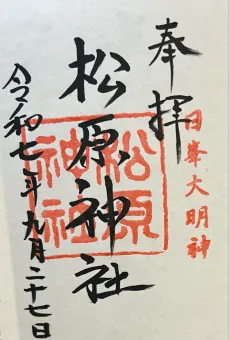 奉拝
日峯大明神
松原神社
松原
神社
令和七年九月二十七日